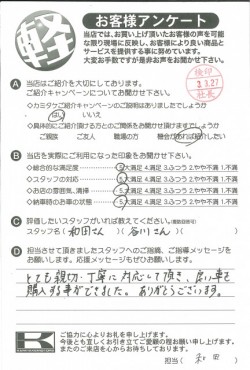 軽
お客様アンケート
当店では、お買い上げ頂いたお客様の声を可能
な限り現場に反映し、お客様により良い商品と
サービスを提供する事に努めています。
大変お手数ですが是非お声をお聞かせ下さい。
検印
3.3.27
社長
A 当店はご紹介を大切にしております。
ご紹介キャンペーンについてお聞かせ下さい。
はい いいえ
ご親族 ご友人 職場の方 機会があれば紹介したい
B 当店を実際にご利用になった印象をお聞かせ下さい。
◇総合的な満足度 5.大満足 4.満足 3.ふつう 2.やや不満 1.不満
◇スタッフの対応 5.大満足 4.満足 3.ふつう 2.やや不満 1.不満
◇お店の雰囲気、清掃 5.大満足 4.満足 3.ふつう 2.やや不満 1.不満
◇納車時のお車の状態 5.大満足 4.満足 3.ふつう 2.やや不満 1.不満
C 評価したいスタッフがいれば教えてください。(複数回答可)
スタッフ名 ( 和田さん ) ( 谷川さん ) ( )
D 担当させて頂きましたスタッフへのご指摘、ご指導メッセージを
お願いします。応援メッセージもお願いします!!
とても親切、丁寧に対応して頂き、良い車を
購入する事ができました。ありがとうございます。
K
ご協力に心よりお礼を申し上げます。
今後とも宜しくお引き立てご愛顧の程お願い申し上げます。
またのご来店を心からお待ちしております。
担当( 和田 )